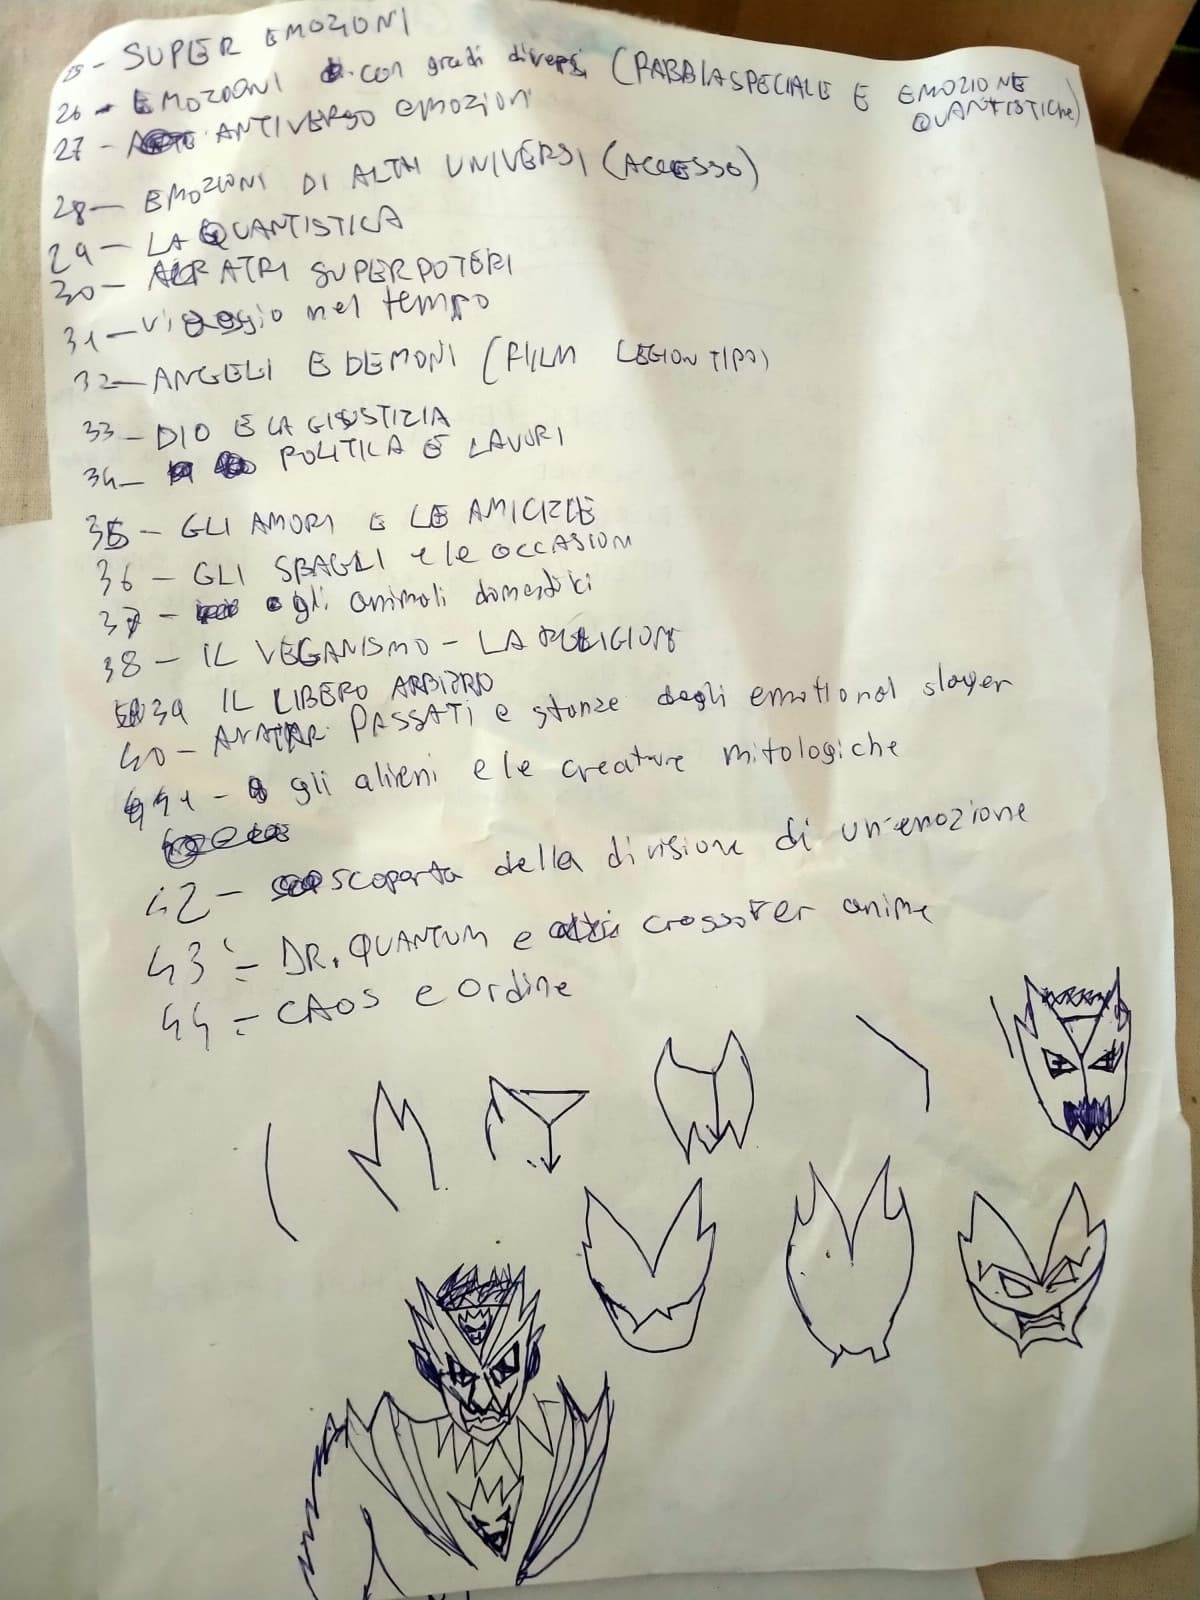 25 - SUPER EMOZIONI
26 - EMOZIONI con gradi diversi (RABBIA SPECIALE E EMOZIONE QUANTISTICHE)
27 - ANTIVERSO emozioni
28 - EMOZIONI DI ALTRI UNIVERSI (ACCESSO)
29 - LA QUANTISTICA
30 - ATRI SUPERPOTERI
31 - viaggio nel tempo
32 - ANGELI E DEMONI (FILM LEGION TIPO)
33 - DIO E LA GIUSTIZIA
34 - POLITICA E LAVORI
35 - GLI AMORI E LE AMICIZIE
36 - GLI SBAGLI e le OCCASIONI
37 - gli animali domestici
38 - IL VEGANISMO - LA RELIGIONE
39 IL LIBERO ARBITRIO
40 - AVATAR PASSATI e stanze degli emotional slayer
41 - gli alieni e le creature mitologiche
42 - scoperta della divisione di un'emozione
43 - DR. QUANTUM e crossover anime
44 - CAOS e Ordine